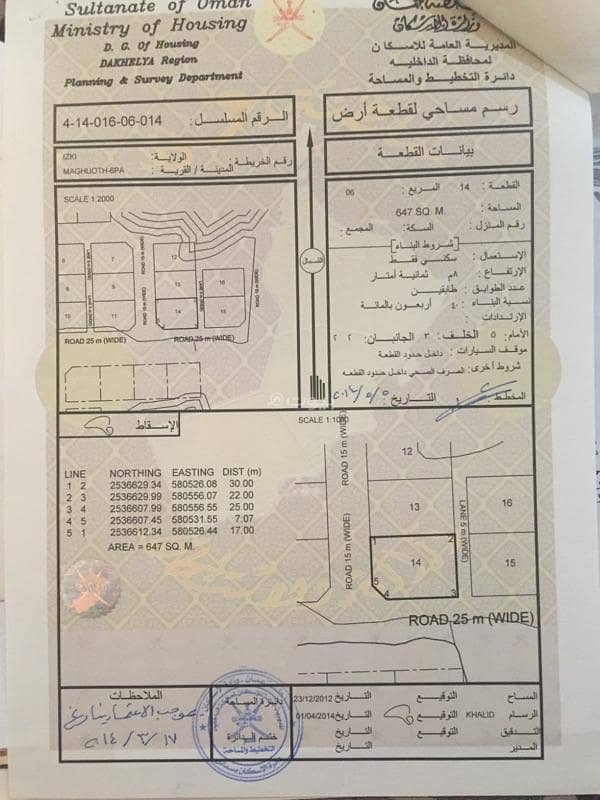 Sultanate of Oman
Ministry of Housing
D. G. Of Housing
DAKHELYA Region
Planning & Survey Department
وزارة الاسكان
المديرية العامة للاسكان
لمحافظة الداخليه
دائرة التخطيط والمساحة
الرقم المسلسل : 4-14-016-06-014
رسم مساحي لقطعة أرض
رقم الخريطة : الولاية: IZKI
المدينة / القرية : MAGHUOTH-6PA
بيانات القطعة
القطعة : 14 المربع : 06
المساحة : 647 SQ. M.
رقم المنزل : السكة: المجمع :
شروط البناء
الإستعمال : سكني فقط
الإرتفاع : ٨م ثمانية أمتار
عدد الطوابق : طابقين
نسبة البناء : ٤٠ أربعون بالمائة
الإرتدادات :
الأمام: ٥ الخلف: ٣ الجانبان: ٢ ٢
موقف السيارات : داخل حدود القطعة
شروط أخرى: الصرف الصحي داخل حدود القطعه
المخطط : التاريخ :
SCALE 1:2000
12
15
16
ROAD 15 m (WIDE)
ROAD 25 m (WIDE)
ROAD 25 m (WIDE)
الشمال
الإسقاط
SCALE 1:1000
LINE NORTHING EASTING DIST (m)
1 2 2536629.34 580526.08 30.00
2 3 2536629.99 580556.07 22.00
3 4 2536607.99 580556.55 25.00
4 5 2536607.45 580531.55 7.07
5 1 2536612.34 580526.44 17.00
AREA = 647 SQ. M.
ROAD 15 m (WIDE)
ROAD 15 m (WIDE)
LANE 5 m (WIDE)
12
13
14
16
15
1
2
3
4
5
ROAD 25 m (WIDE)
الملاحظات
دائرة المساحة
ختم الدائرة
المساح التوقيع التاريخ 23/12/2012
الرسام KHALID التوقيع التاريخ 01/04/2014
التدقيق التوقيع التاريخ
المدير التاريخ